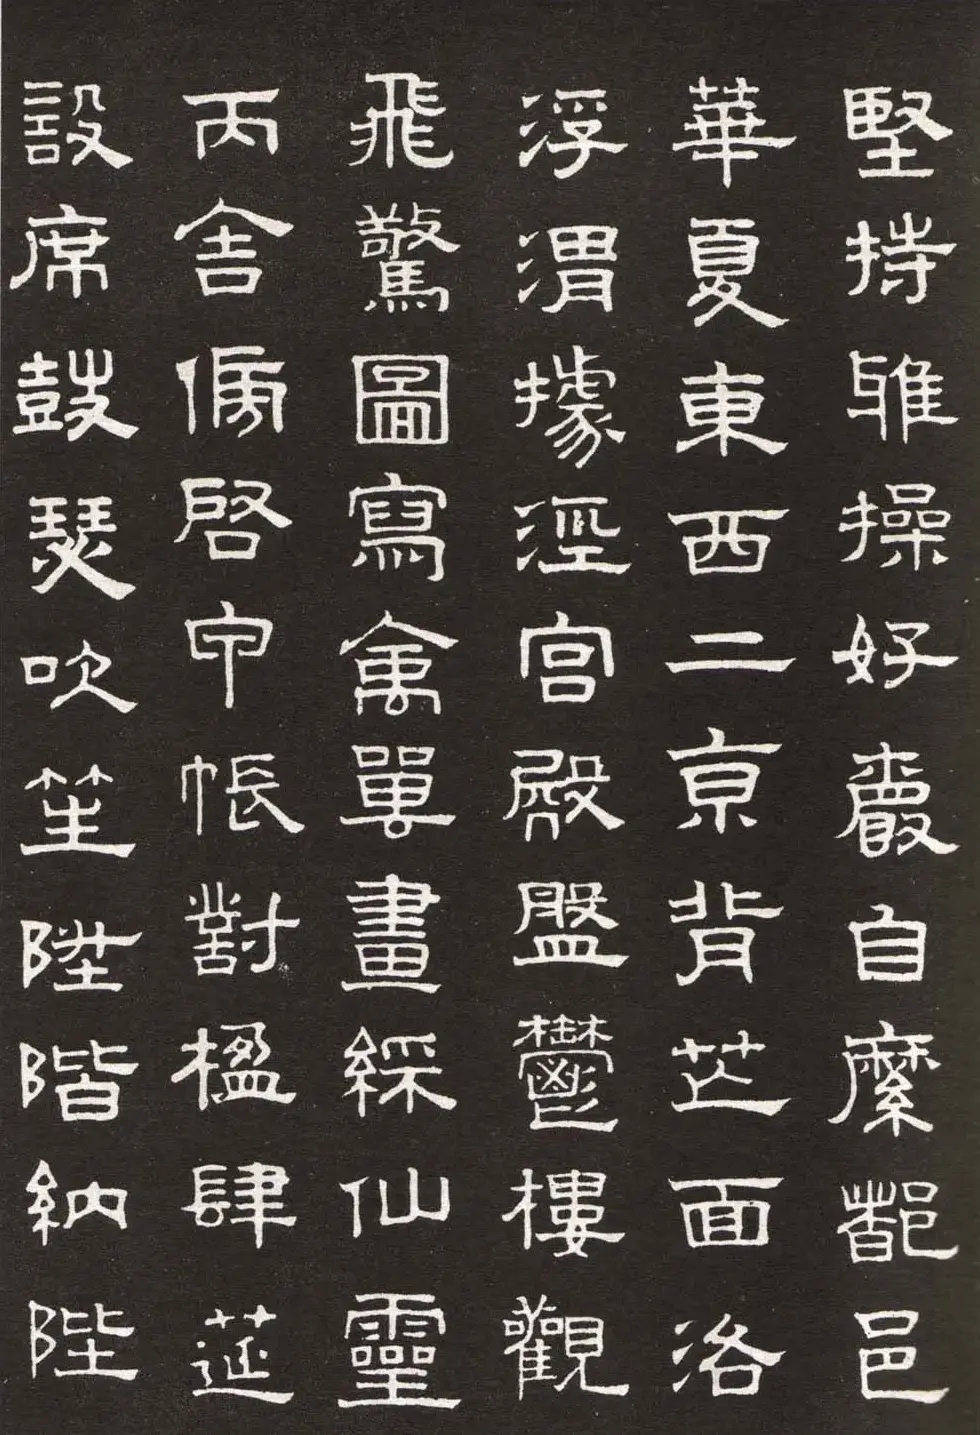 堅持雅操好爵自縻都邑
華夏東西二京背芒面洛
浮渭據涇宮殿盤鬱樓觀
飛驚圖寫禽嘼畫綵仙靈
丙舍傍啓甲帳對楹肆筵
設席鼓瑟吹笙陞階納陛